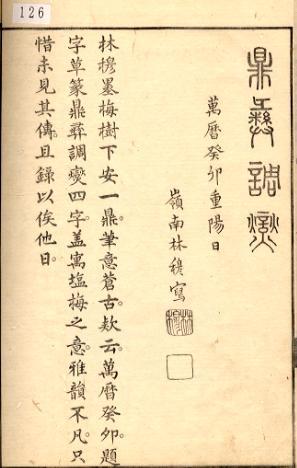 126
鼎彝調燮
萬曆癸卯重陽日
嶺南林穆寫
林穆墨梅樹下安一鼎筆意蒼古欵云萬曆癸卯。題
字草篆鼎彝調燮四字。盖寓塩梅之意。雅韻不凡。只
惜未見其傳。且錄以俟他日。